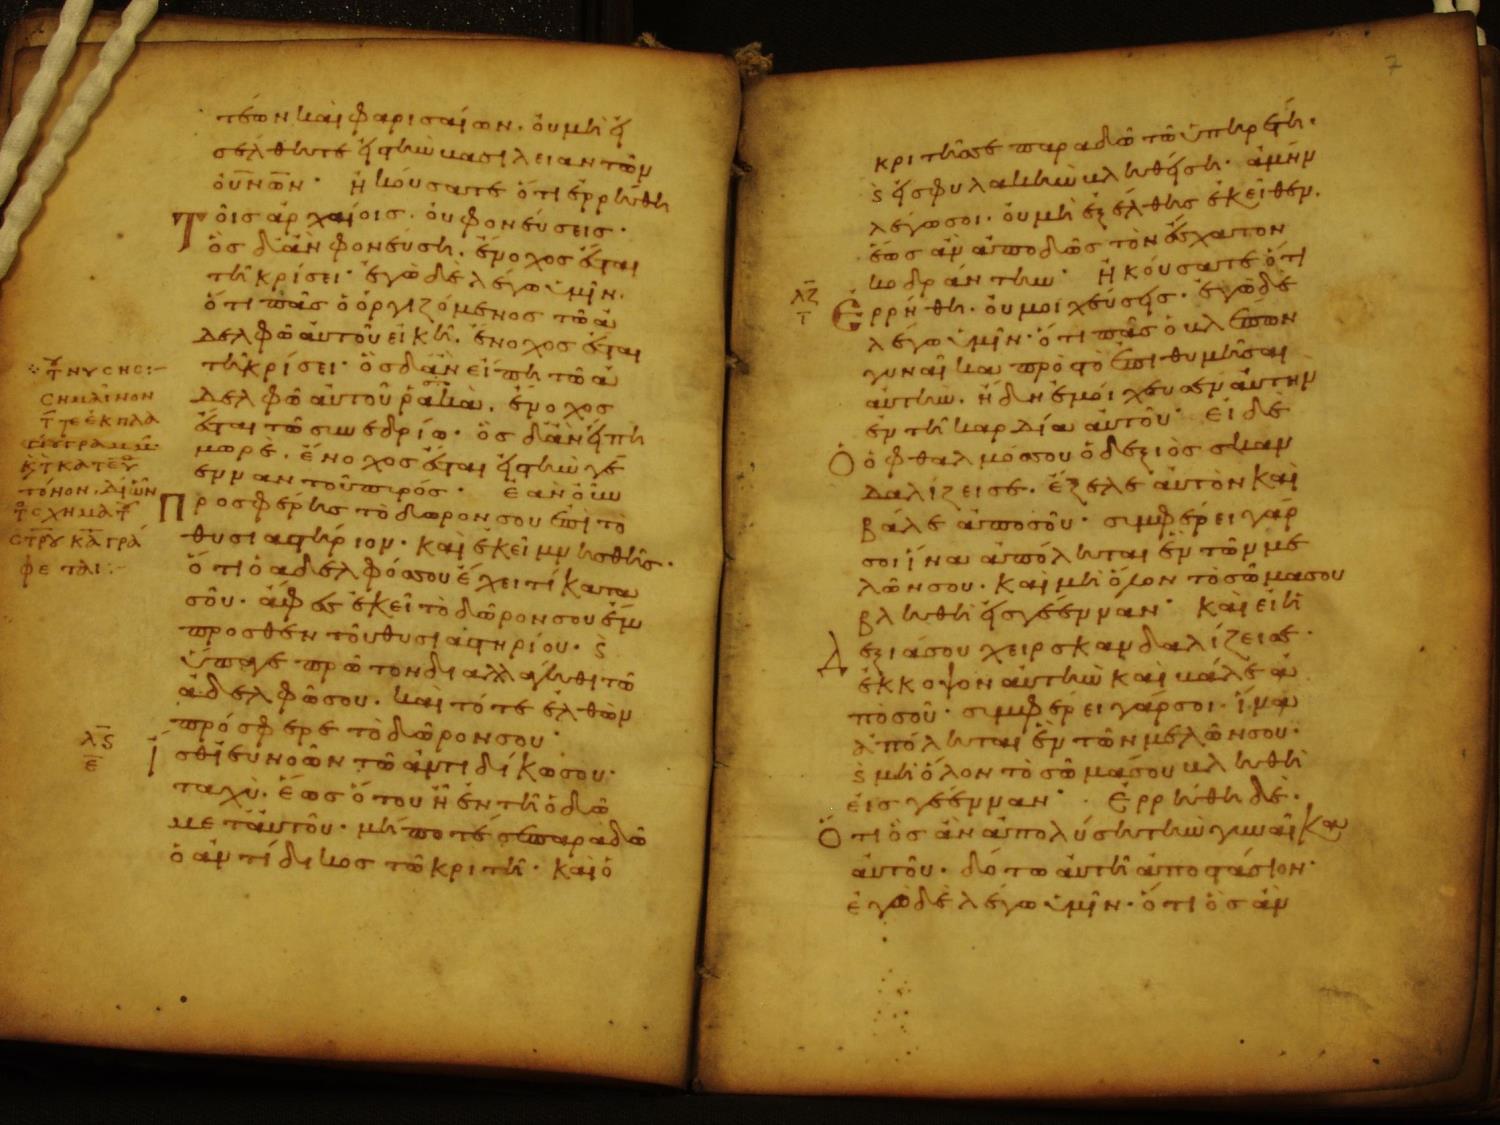 τέων και φαρισαίων. ου μη ει
σέλθητε εις την βασιλειαν των
ου̅ν̅ων· ηκούσατε ότι ερρήθη
Τοις αρχαίοις. ου φονεύσεις·
ὃς δ' αν φονεύση. ένοχος έσται
τη κρίσει· εγω δε λέγω υμιν.
ότι πας ο οργιζόμενος τω α
δελφω αυτου εικη. ένοχος έσται
τη κρίσει· ὃς δ' αν είπη τω α
δελφω αυτου ρακα. ένοχος
έσται τω συνεδρίω· ὃς δ' αν είπη
μωρε. ένοχος έσται εις την γέ
ενναν του πυρός· Εαν ουν
Προσφέρης το δωρον σου επι το
θυσιαστήριον· και εκει μνησθης·
ότι ο αδελφός σου έχει τι κατα
σου· άφες εκει το δωρον σου έμ
προσθεν του θυσιαστηρίου· ϛ
ύπαγε πρωτον διαλλάγηθι τω
αδελφω σου. και τότε ελθων
πρόσφερε το δωρον σου·
λϛ
ε
Ίσθι ευνοων τω αντιδίκω σου·
ταχυ. έως ότου ει εν τη οδω
μετ' αυτου· μή ποτέ σε παραδω
ο αντίδικος τω κριτη· και ο
σημαινον
7
κριτής σε παραδω τω υπηρέτη·
ϛ εις φυλακην βληθήση· αμην
λέγω σοι· ου μη εξέλθης εκειθεν.
έως αν αποδως τον έσχατον
κοδράντην· Ηκούσατε ότι
λζ
ι
Ερρήθη· ου μοιχεύσεις· εγω δε
λέγω υμιν· ότι πας ο βλέπων
γυναικα προς το επιθυμησαι
αυτην. ήδη εμοίχευσεν αυτην
εν τη καρδία αυτου· ει δε
Ο οφθαλμός σου ο δεξιος σκαν
δαλίζει σε. έξελε αυτον και
βάλε απο σου· συμφέρει γάρ
σοι ίνα απόληται εν των με
λων σου· και μη όλον το σωμα σου
βληθη εις γέενναν· και ει η
Δεξιά σου χειρ σκανδαλίζει σε·
έκκοψον αυτην και βάλε α
πο σου· συμφέρει γάρ σοι· ίνα
απόληται εν των μελων σου·
ϛ μη όλον το σωμά σου βληθη
εις γέενναν· Ερρήθη δε·
Ότι ὃς αν απολύση την γυναικα
αυτου· δότω αυτη αποστάσιον·
εγω δε λέγω υμιν· ότι ὃς αν